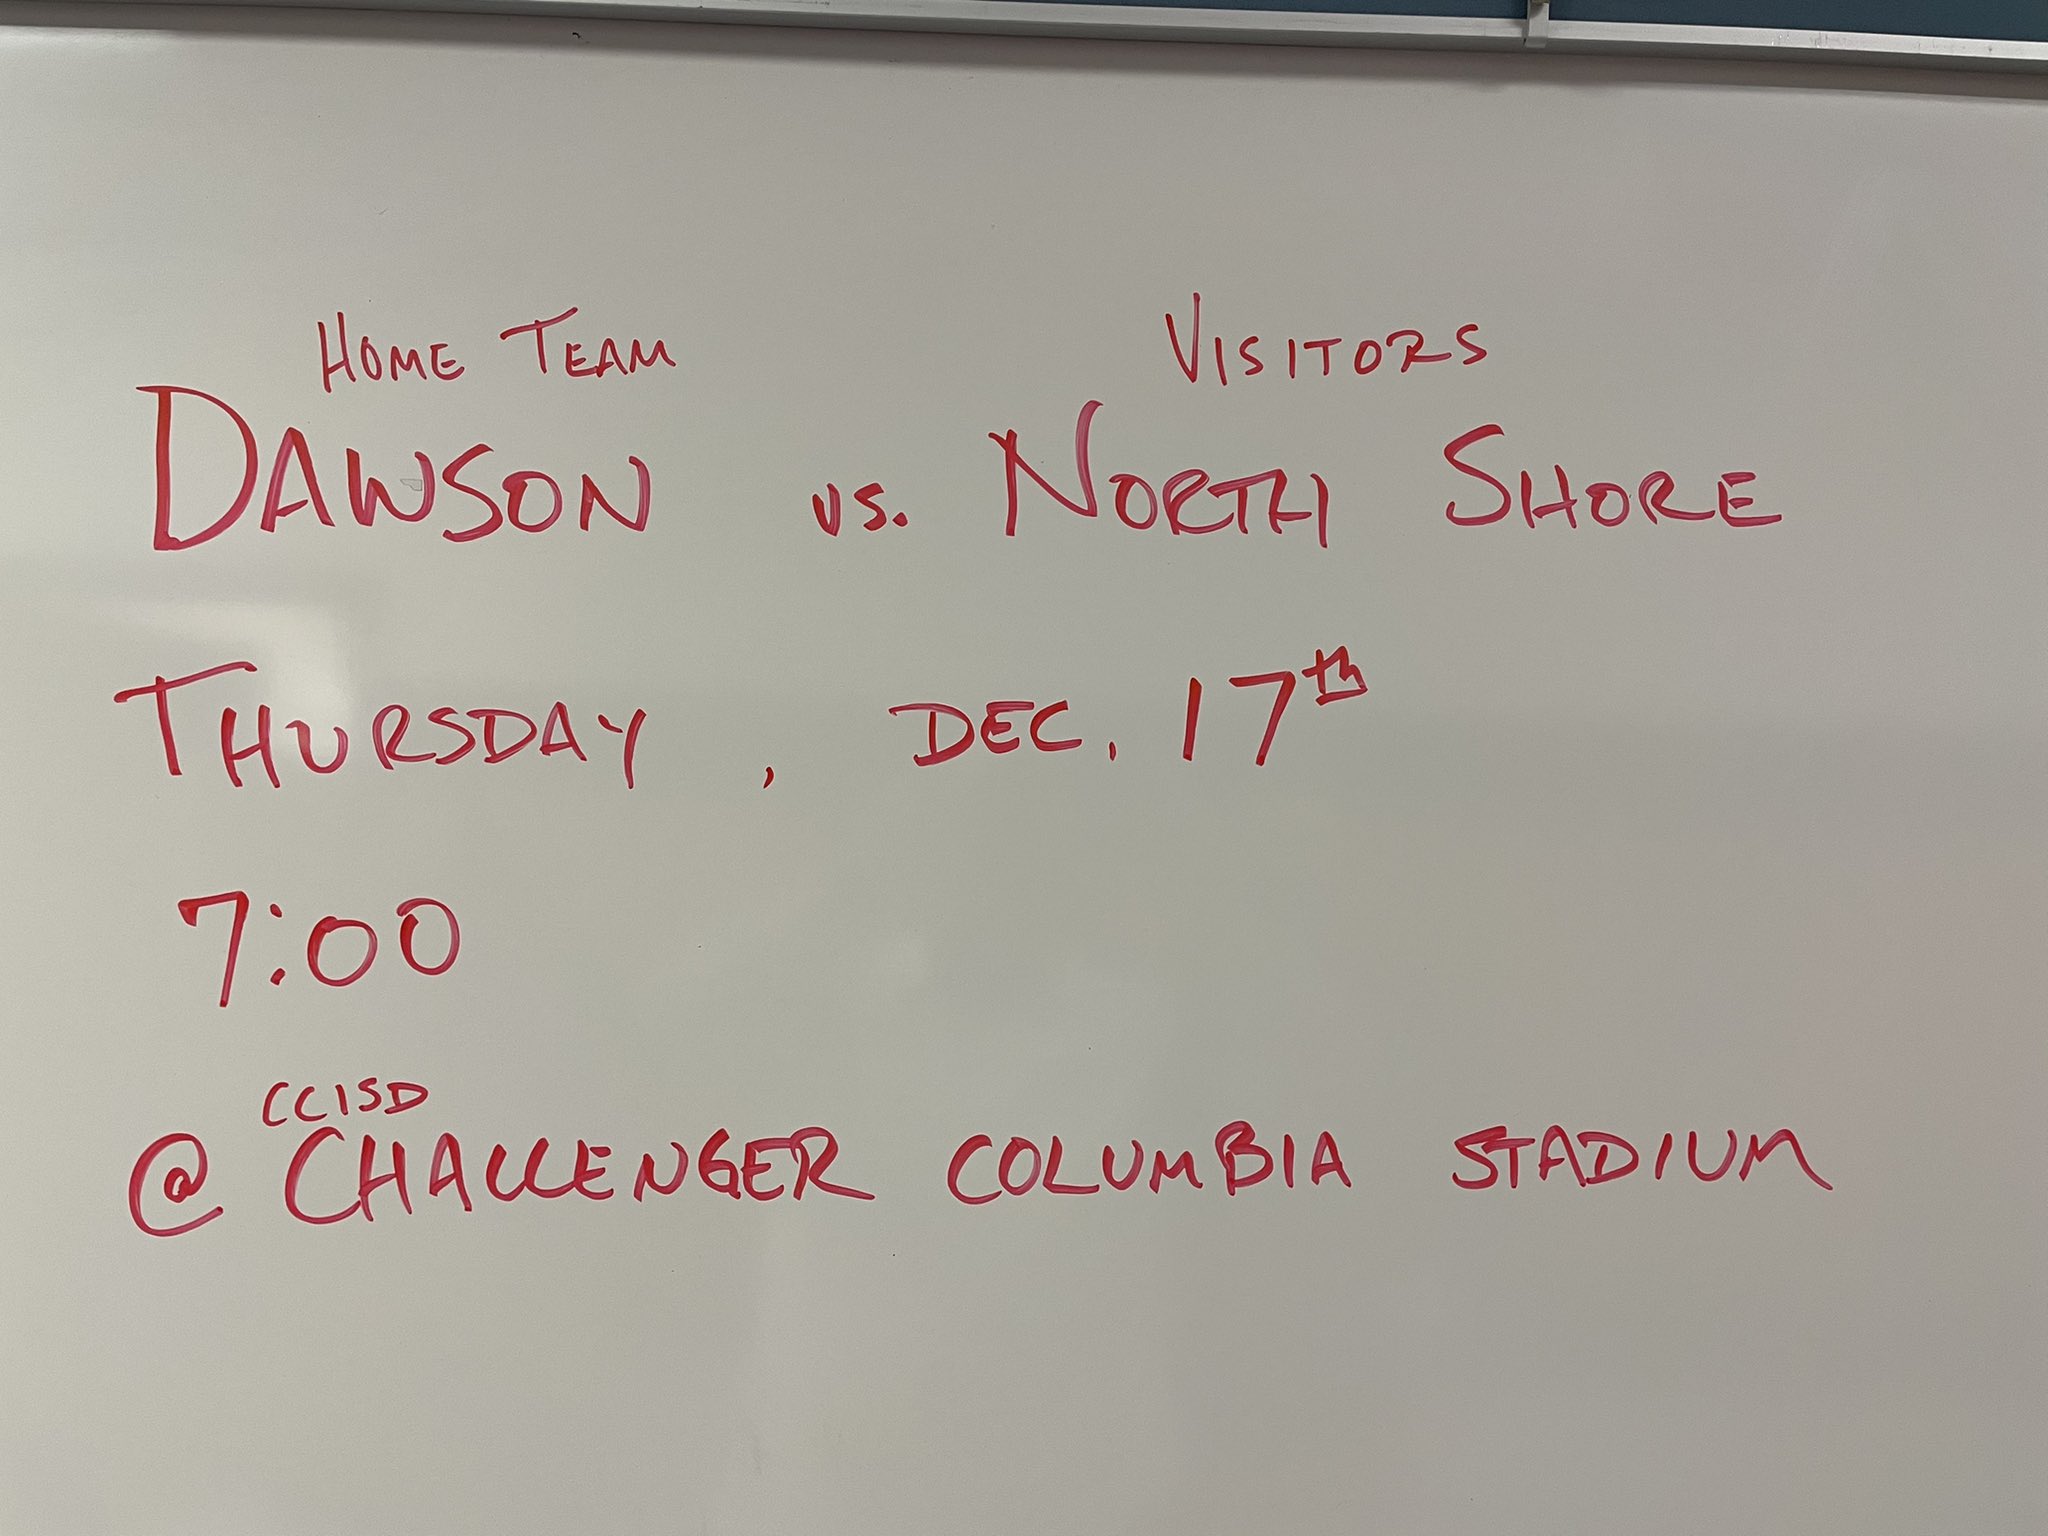 HOME TEAM VISITORS
DAWSON vs. NORTH SHORE
THURSDAY, DEC. 17th
7:00
CCISD
@ CHALLENGER COLUMBIA STADIUM